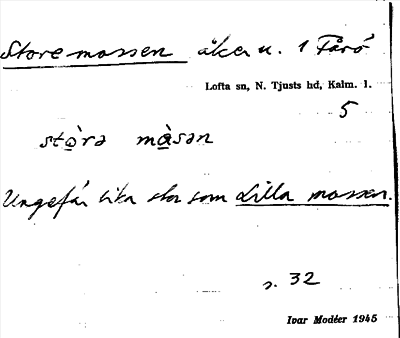 Storemossen åker u. 1 Fårö
Lofta sn, N. Tjusts hd, Kalm. l.
5
stȯ̱̀rə må̱̀sən
Ungefär lika stor som Lilla mossen.
s. 32
Ivar Modéer 1945